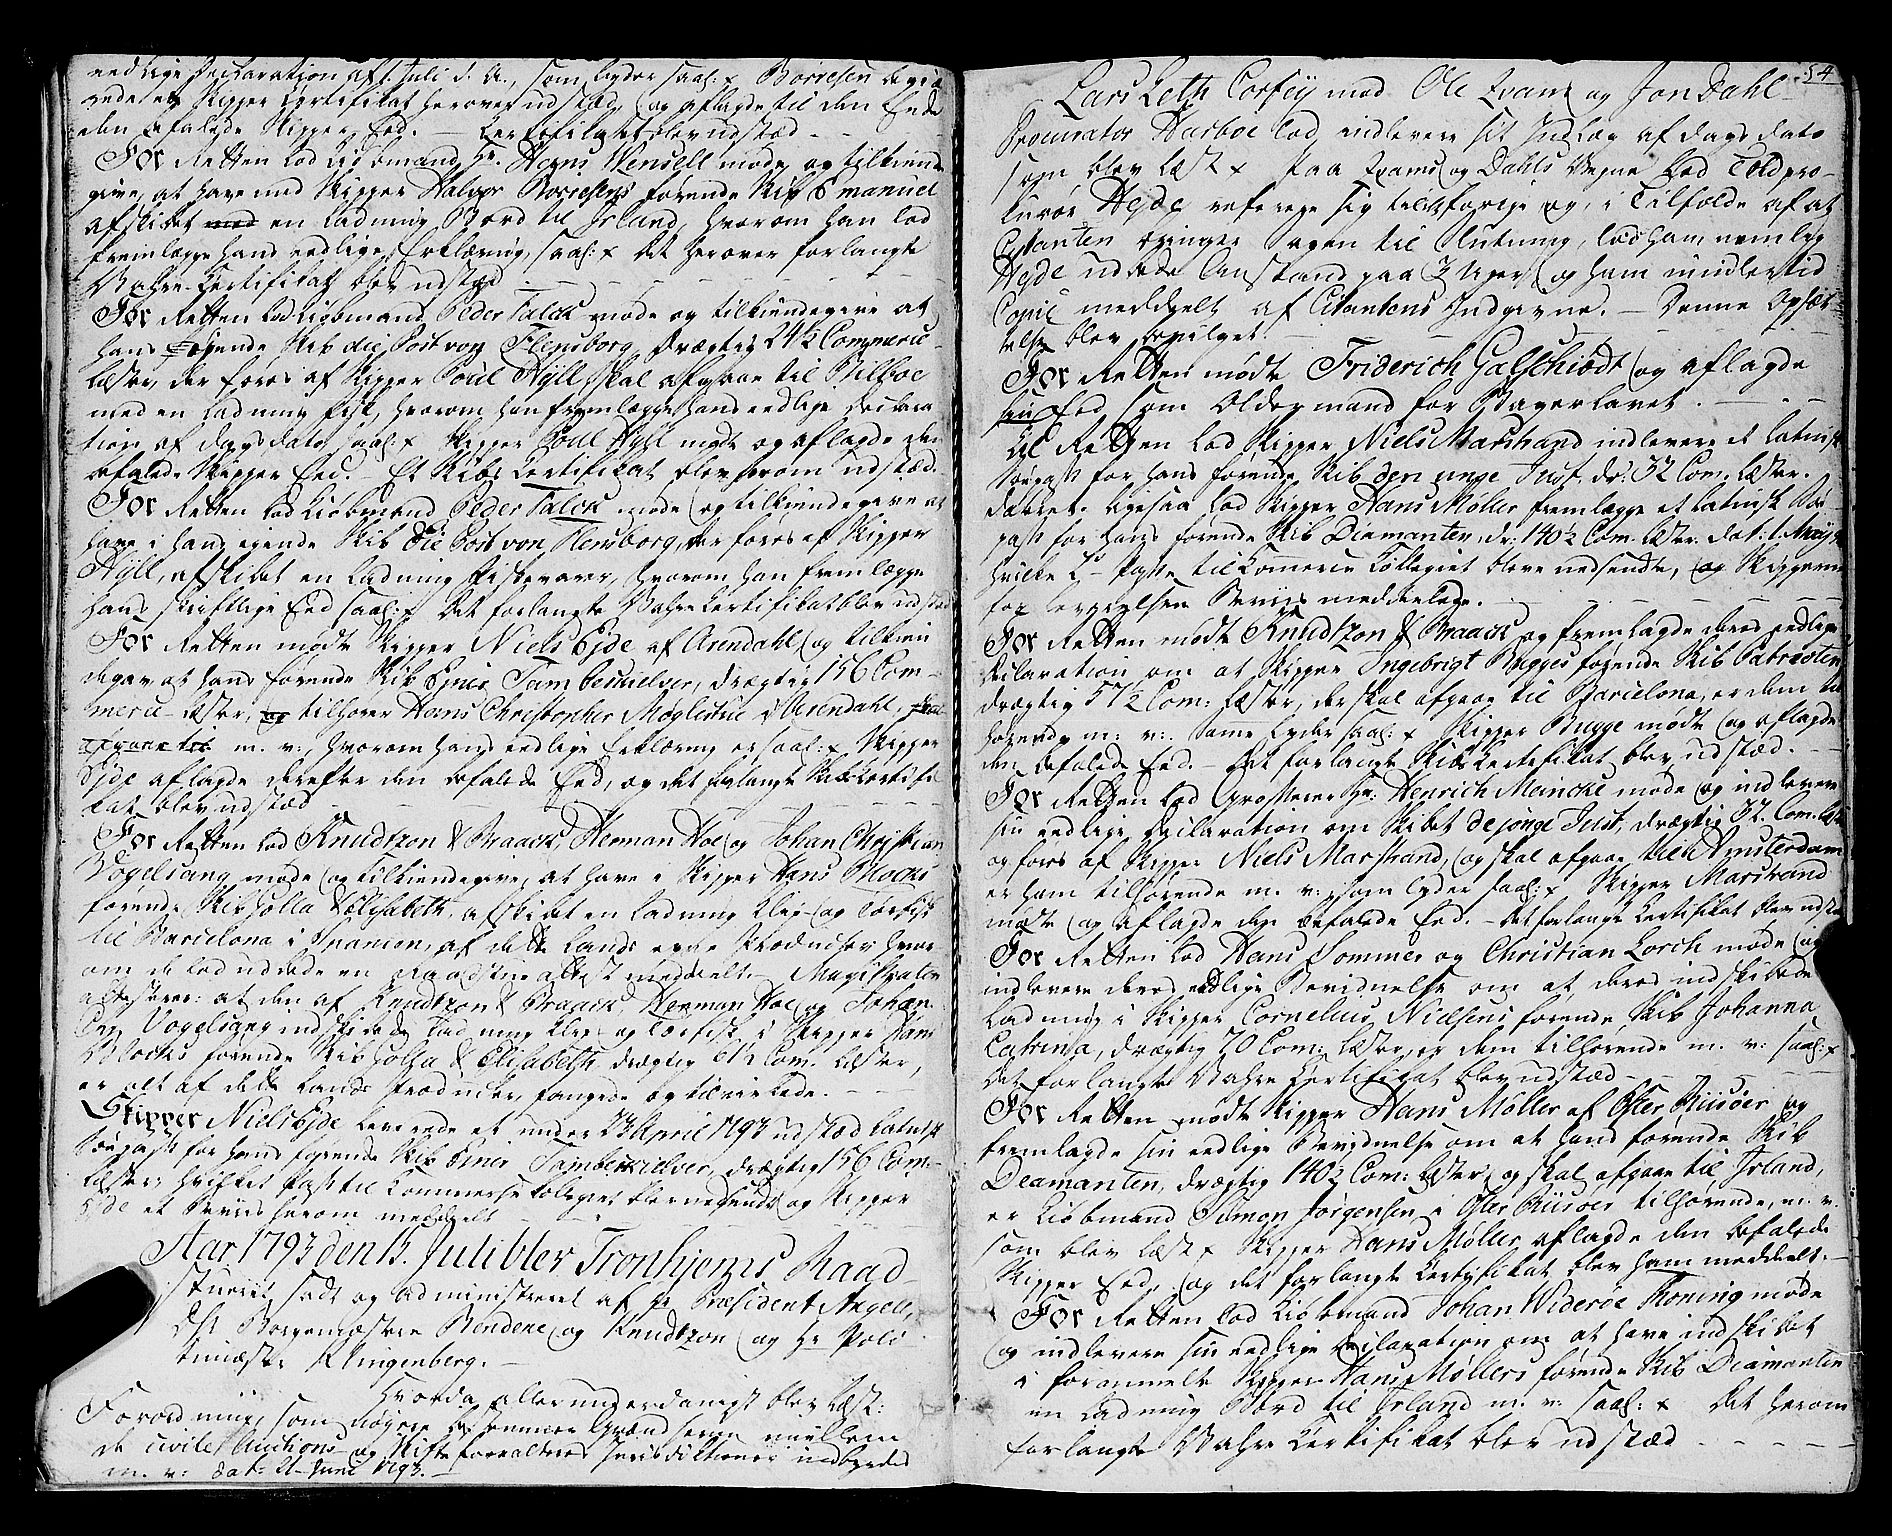 eedlige Declaration af 1. Juli d. A., som lyder saal: x Børresen begiæ
rede et Skipper Certifikat herover udstæd, og aflagde til den Ende
den befalede Skipper Eed. — Certifikatet blev udstæd. —
For Retten lod Kiøbmand Hr. Hans Wensell møde og tilkiende
give, at have med Skipper Halvor Børresens førende Skib Emanuel
afskibet med en Ladning Bord til Irland, hvorom han lod
fremlægge hans eedlige Erklæring, saal: x Det herover forlangte
Vahre-Certifikat blev udstæd. —
For Retten lod Kiøbmand Peder Falck møde og tilkiendegive at
hans eyende Skib die Post von Flensborg, drægtig 24½ Commerce-
Læster, der føres af Skipper Poul Hÿll, skal afgaae til Bilboe
med en Ladning Fisk, hvorom han fremlægge hans eedlige Declara
tion af Dags dato saal: x Skipper Poul Hÿll mødte og aflagde den
befalede Skipper Eed. — Et Skibs Certifikat blev herom udstæd.
For Retten lod Kiøbmand Peder Falck møde og tilkiendegive at
have i hans egende Skib Die Post von Flensborg, der føres af Skipper
Hÿll, afskibet en Ladning Fiskevarer, hvorom han fremlægge
hans skriftlige Eed saal: x Det forlangte Vahre Certifikat blev udstæd
For Retten mødte Skipper Niels Eyde af Arendahl og tilkien
degav at hans førende Skib Ejner Tambeskielver, drægtig 156 Com-
merce-Læster, og tilhører Hans Christopher Møglestue i Arendahl, skal
afgaae til m. v., hvorom hans eedlige Erklæring er saal: x Skipper
Eyde aflagde derefter den befalede Eed, og det forlangte Skibs Certifi
kat blev udstæd. —
For Retten lod Knudtzon & Braack, Herman Hoe og Johan Christian
Vogelsang møde og tilkiendegive, at have i Skipper Hans Blocks
førende Skib Holla & Elisabeth, afskibet en Ladning Klip- og Tørfisk
til Barcelona i Spanien, af dette Lands egne Producter hvor-
om de lod udbede en Raadstue attest meddeelt. — Magistraten
attesterer: at den af Knudtzon & Braack, Herman Hoe og Johan
Chr. Vogelsang indskibede Ladning Klip- og Tørfisk i Skipper Hans
Blocks førende Skib Holla & Elisabeth, drægtig 61½ Com. Læster,
er alt af dette Lands Producter, fangede og tilvirkede. —
Skipper Niels Eyde leverede et under 23 April 1793 udstæd latinsk
Søepass for hans førende Skib Ejner Tambeskielver, drægtig 156 Com-
Læster, hvilket Pass til Commerse Kollegiet blev nedsendt og Skipper
Eyde et Beviis herom meddeelt. —
Aar 1793 den 13. Juli blev Tronhjems Raad
stueret sadt og administreret af Hr. Præsident Angell,
Dhr. Borgemestere Bendeke og Knudtzon og Hr. Poli
timester Klingenberg. —
Hvorda allerunderdanigst blev læst:
Forordning, som nøyere bestemmer Grændserne imellem
de civile Auctions- og Skifteforvalteres Jurisdiktioner indbyrdes
m. v: dat: 21. Juni 1793. —
54
Lars Leth Corfey mod Ole Qvam og Jon Dahl
Procurator Harboe lod indlevere sit Indlæg af Dags dato
som blev læst x Paa Qvams og Dahls Vegne lod Cold pro-
kurør Hejde referere sig til det forrige og, i Tilfælde af at
Citanten bringer Sagen til Slutning, lod han, nemlig
Hejde udbede Anstand paa 3 Uger og ham imidlertid
Copie meddeelt af Citantens Indgivne. — Denne Opsæt-
telse blev bevilget. —
For Retten mødte Friderich Galschiødt og aflagde
sin Eed som Oldermand for Bagerlavet. —
For Retten lod Skipper Niels Marstrand indlevere et latinsk
Søepass for hans førende Skib den unge Just, dr: 32 Com. Læster.
dateret. Ligesaa lod Skipper Hans Møller fremlægge et latinsk Søe-
pass for hans førende Skib Diamanten, dr: 140½ Com. Læster. dat: 1. Maji
hvilke 2de Passe til Komerce Kollegiet bleve nedsendte, og Skipperne
for Leverelsen Beviis meddeelede. —
For Retten mødte Knudtzon & Braack og fremlagde deres eedlige
Declaration om at Skipper Ingebrigt Bugges førende Skib Patrioten
drægtig 57½ Com: Læster, der skal afgaae til Barcelona, er dem til
hørende m: v:. Same lyder saal: x Skipper Bugge mødte og aflagde
den befalede Eed. — Det forlangte Skibs Certefikat blev udstæd. —
For Retten lod Grosserer Hr: Henrich Meincke møde og indlevere
sin eedlige Declaration om Skibet de jonge Just, drægtig 32 Com. Læster
og føres af Skipper Niels Marstrand, og skal afgaae til Amsterdam
er ham tilhørende m. v: som lyder saal: x Skipper Marstrand
mødte og aflagde den befalede Eed. — Det forlangte Certifikat blev udstæd
For Retten lod Hans Sommer og Christian Lorck møde og
indlevere deres eedlige Bevidnelse om at deres indskibede
Ladning i Skipper Cornelius Nielsens førende Skib Johanna
Catrina, drægtig 70 Com: Læster, er dem tilhørende m. v: saal: x
Det forlangte Vahre Certifikat blev udstæd. —
For Retten mødte Skipper Hans Møller af Øster Riisøer og
fremlagde sin eedlige Bevidnelse om at hans førende Skib
Deamanten, drægtig 140½ Com: Læster, og skal afgaae til Irland,
er Kiøbmand Simon Jørgensen i Øster Riisøer tilhørende, m. v.
som blev læst x Skipper Hans Møller aflagde den befalede
Skipper Eed, og det forlangte Certyfikat blev ham meddeelt. —
For Retten lod Kiøbmand Johan Widerøe Koning møde
og indlevere sin eedlige Declaration om at have indskibet
i formmelte Skipper Hans Møllers førende Skib Diamanten
en Ladning Bord til Irland m. v: saal: x Det herom
forlangte Vahre Certifikat blev udstæd. —